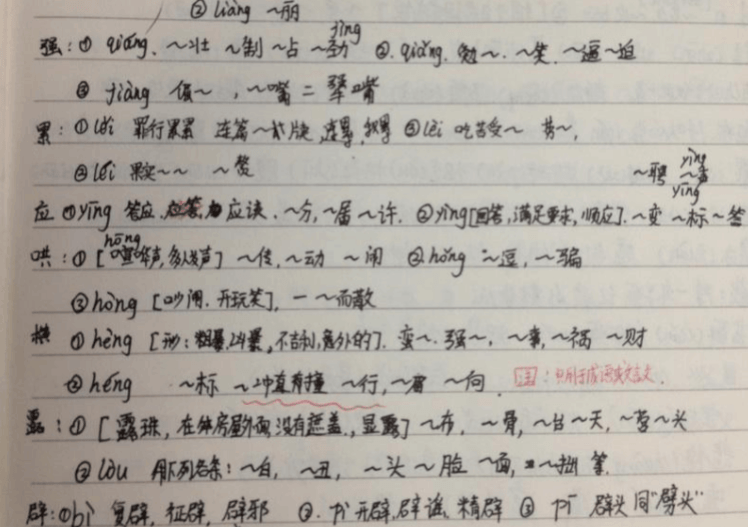 ② liàng ~丽
强:① qiáng. ~壮 ~制 ~占 ~劲jìng ②. qiǎng. 勉~. ~笑. ~逼~迫
③ jiàng 倔~, ~嘴=犟嘴
累:① lěi 罪行累累 连篇~牍, ②lèi 吃苦受~ 劳~,
③léi 果实~~ ~赘
~聘 yìng
应 ①yīng 答应. 应该. ~分, ~届 ~许. ②yìng[回答,满足要求,顺应]. ~变 ~标 ~答
哄:①hōng [喧哗声,多人发声] ~传, ~动 ~闹 ②hǒng ~逗, ~骗
③hòng [吵闹.开玩笑], 一~而散
横 ① hèng [形: 粗暴,凶暴,不吉利,意外的]. 蛮~. 强~, ~事, ~祸 ~财
② héng ~标 ~冲直撞 ~行, ~眉 ~向. 注:只用于成语或文言文.
露:① [露珠, 在体房屋外面,没有遮盖,显露] ~布, ~骨, ~台 ~天, ~营 ~头
② lòu 用于下列各条: ~白, ~丑, ~头 ~脸 ~面, ~拙 等.
辟:①bì 复辟, 征辟, 辟邪 ②. pì 开辟,辟谣, 精辟 ③ pī 辟头 同"劈头"